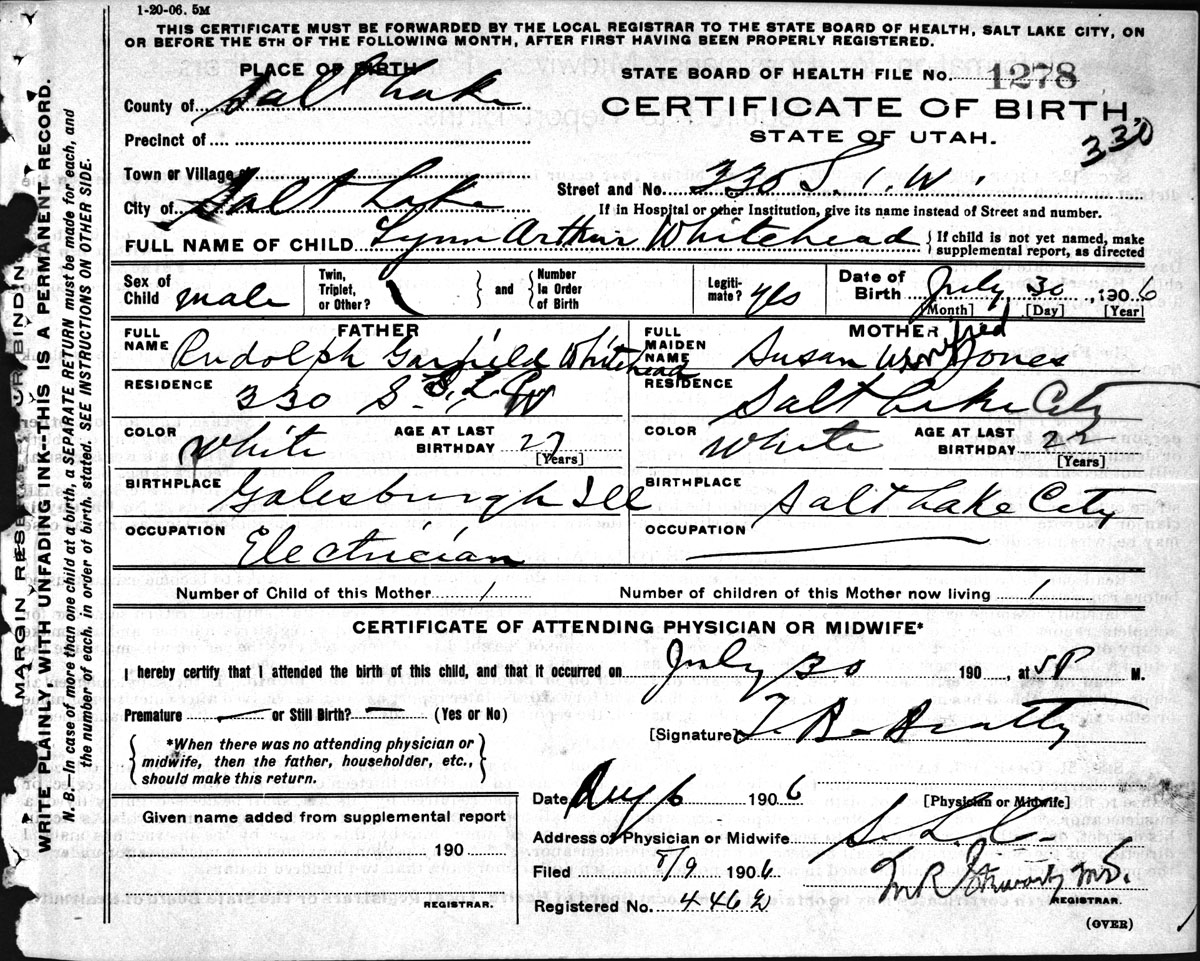 1-20-06. 5M
THIS CERTIFICATE MUST BE FORWARDED BY THE LOCAL REGISTRAR TO THE STATE BOARD OF HEALTH, SALT LAKE CITY, ON
OR BEFORE THE 5TH OF THE FOLLOWING MONTH, AFTER FIRST HAVING BEEN PROPERLY REGISTERED.
PLACE OF BIRTH
STATE BOARD OF HEALTH FILE No. 1278
County of Salt Lake
CERTIFICATE OF BIRTH,
STATE OF UTAH.
330
Precinct of
Town or Village of
Street and No. 330 S. 1. W.
City of Salt Lake
If in Hospital or other Institution, give its name instead of Street and number.
FULL NAME OF CHILD Lynn Arthur Whitehead { If child is not yet named, make supplemental report, as directed
Sex of Child male
Twin, Triplet, or Other? } and { Number in Order of Birth
Legitimate? yes
Date of Birth July 30, 1906
[Month] [Day] [Year]
FATHER
FULL NAME Rudolph Garfield Whitehead
MOTHER
FULL MAIDEN NAME Susan Winnifred Jones
RESIDENCE 330 S. 1 W
RESIDENCE Salt Lake City
COLOR White AGE AT LAST BIRTHDAY 27 [Years]
COLOR White AGE AT LAST BIRTHDAY 22 [Years]
BIRTHPLACE Galesburgh Ill
BIRTHPLACE Salt Lake City
OCCUPATION Electrician
OCCUPATION
Number of Child of this Mother 1 Number of children of this Mother now living 1
CERTIFICATE OF ATTENDING PHYSICIAN OR MIDWIFE*
I hereby certify that I attended the birth of this child, and that it occurred on July 30 190 , at 5 P M.
Premature — or Still Birth? — (Yes or No)
[Signature] T. B. Beatty
{ *When there was no attending physician or midwife, then the father, householder, etc., should make this return. }
Date Aug 6 1906 [Physician or Midwife]
Given name added from supplemental report
Address of Physician or Midwife S. L. C.
190
Filed 8/9 1906 M. R. Stewart, M.D.
REGISTRAR.
REGISTRAR.
Registered No. 446
(OVER)
MARGIN RESERVED FOR BINDING
WRITE PLAINLY, WITH UNFADING INK--THIS IS A PERMANENT RECORD.
N. B.—In case of more than one child at a birth, a SEPARATE RETURN must be made for each, and
the number of each, in order of birth, stated. SEE INSTRUCTIONS ON OTHER SIDE.